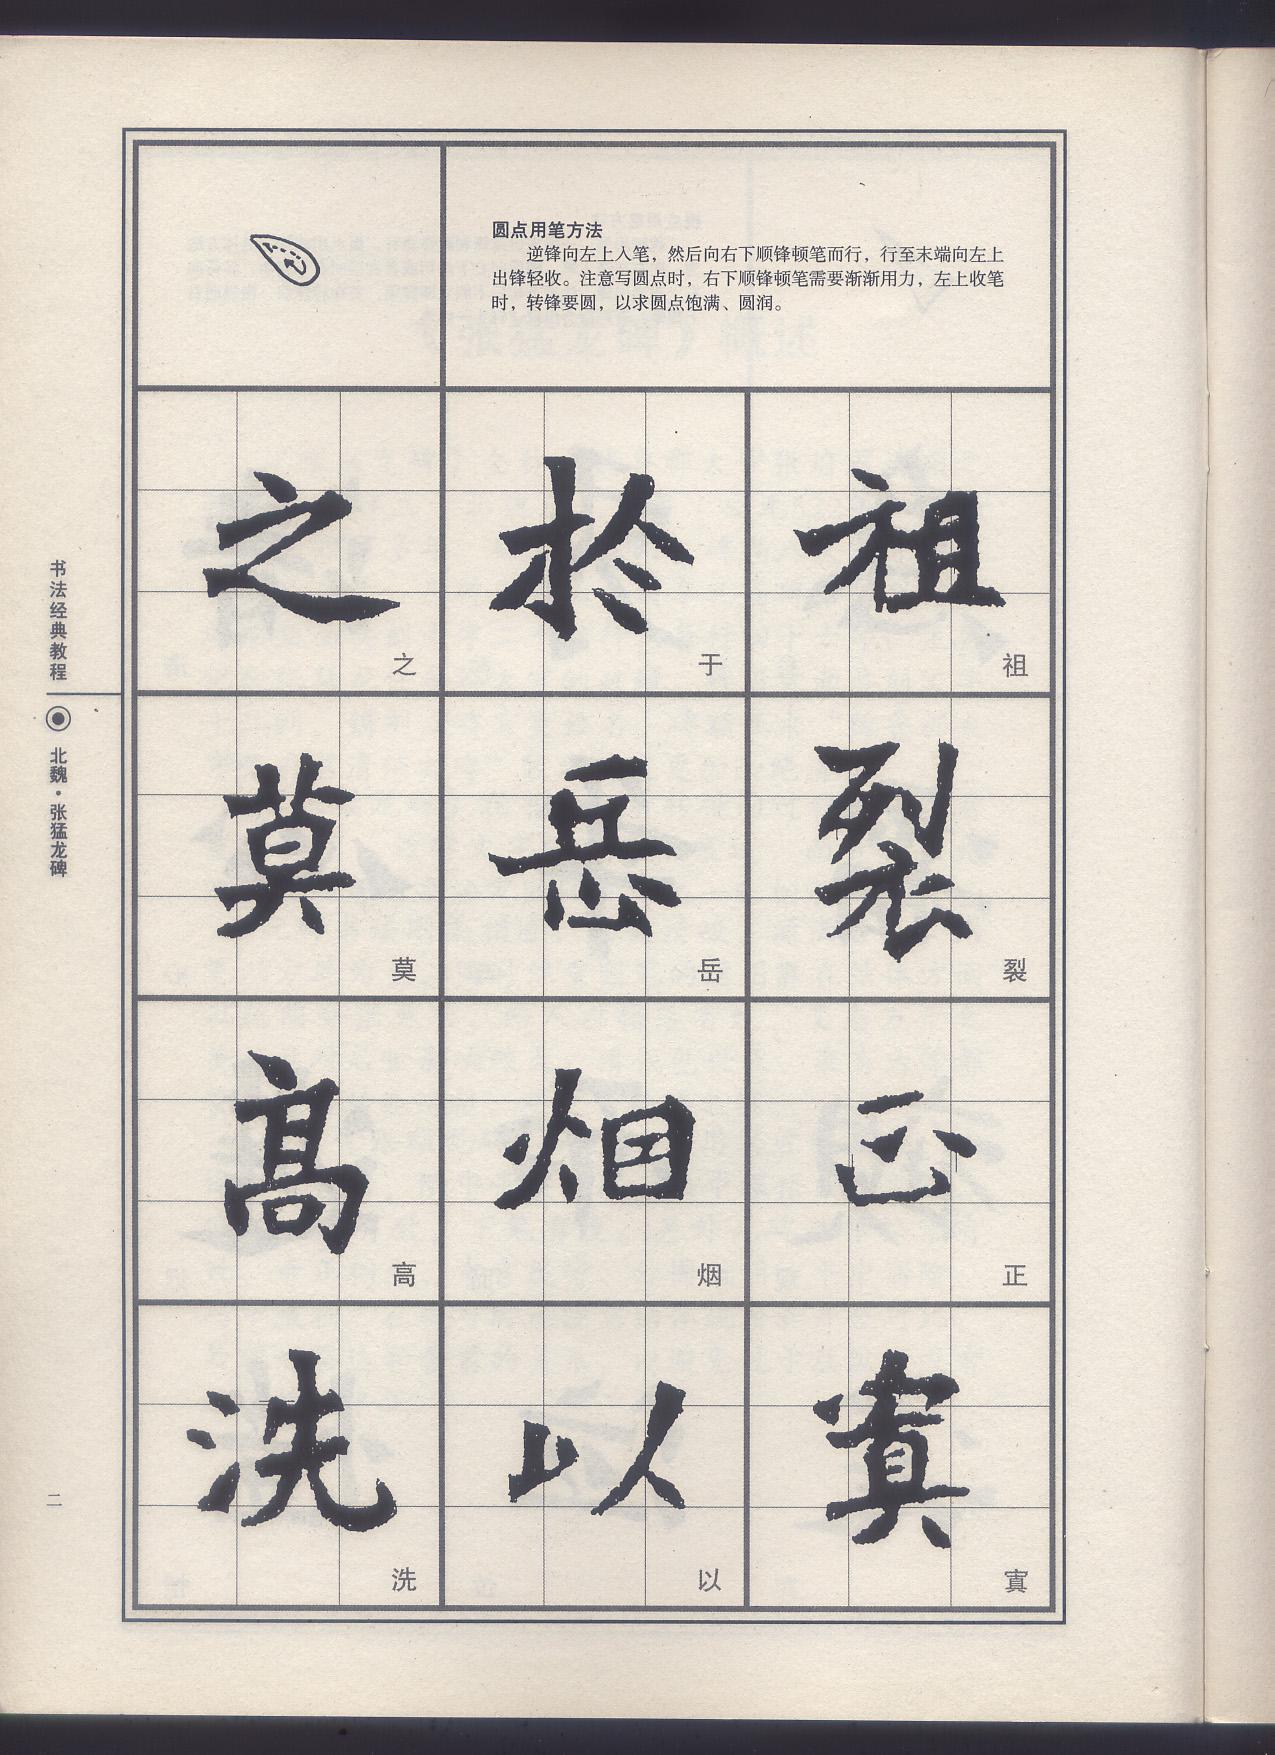 圆点用笔方法
逆锋向左上入笔，然后向右下顺锋顿笔而行，行至末端向左上
出锋轻收。注意写圆点时，右下顺锋顿笔需要渐渐用力，左上收笔
时，转锋要圆，以求圆点饱满、圆润。
之 於 祖
之 于 祖
莫 岳 裂
莫 岳 裂
高 烟 正
高 烟 正
洗 以 寘
洗 以 寘
书法经典教程
北魏·张猛龙碑
二